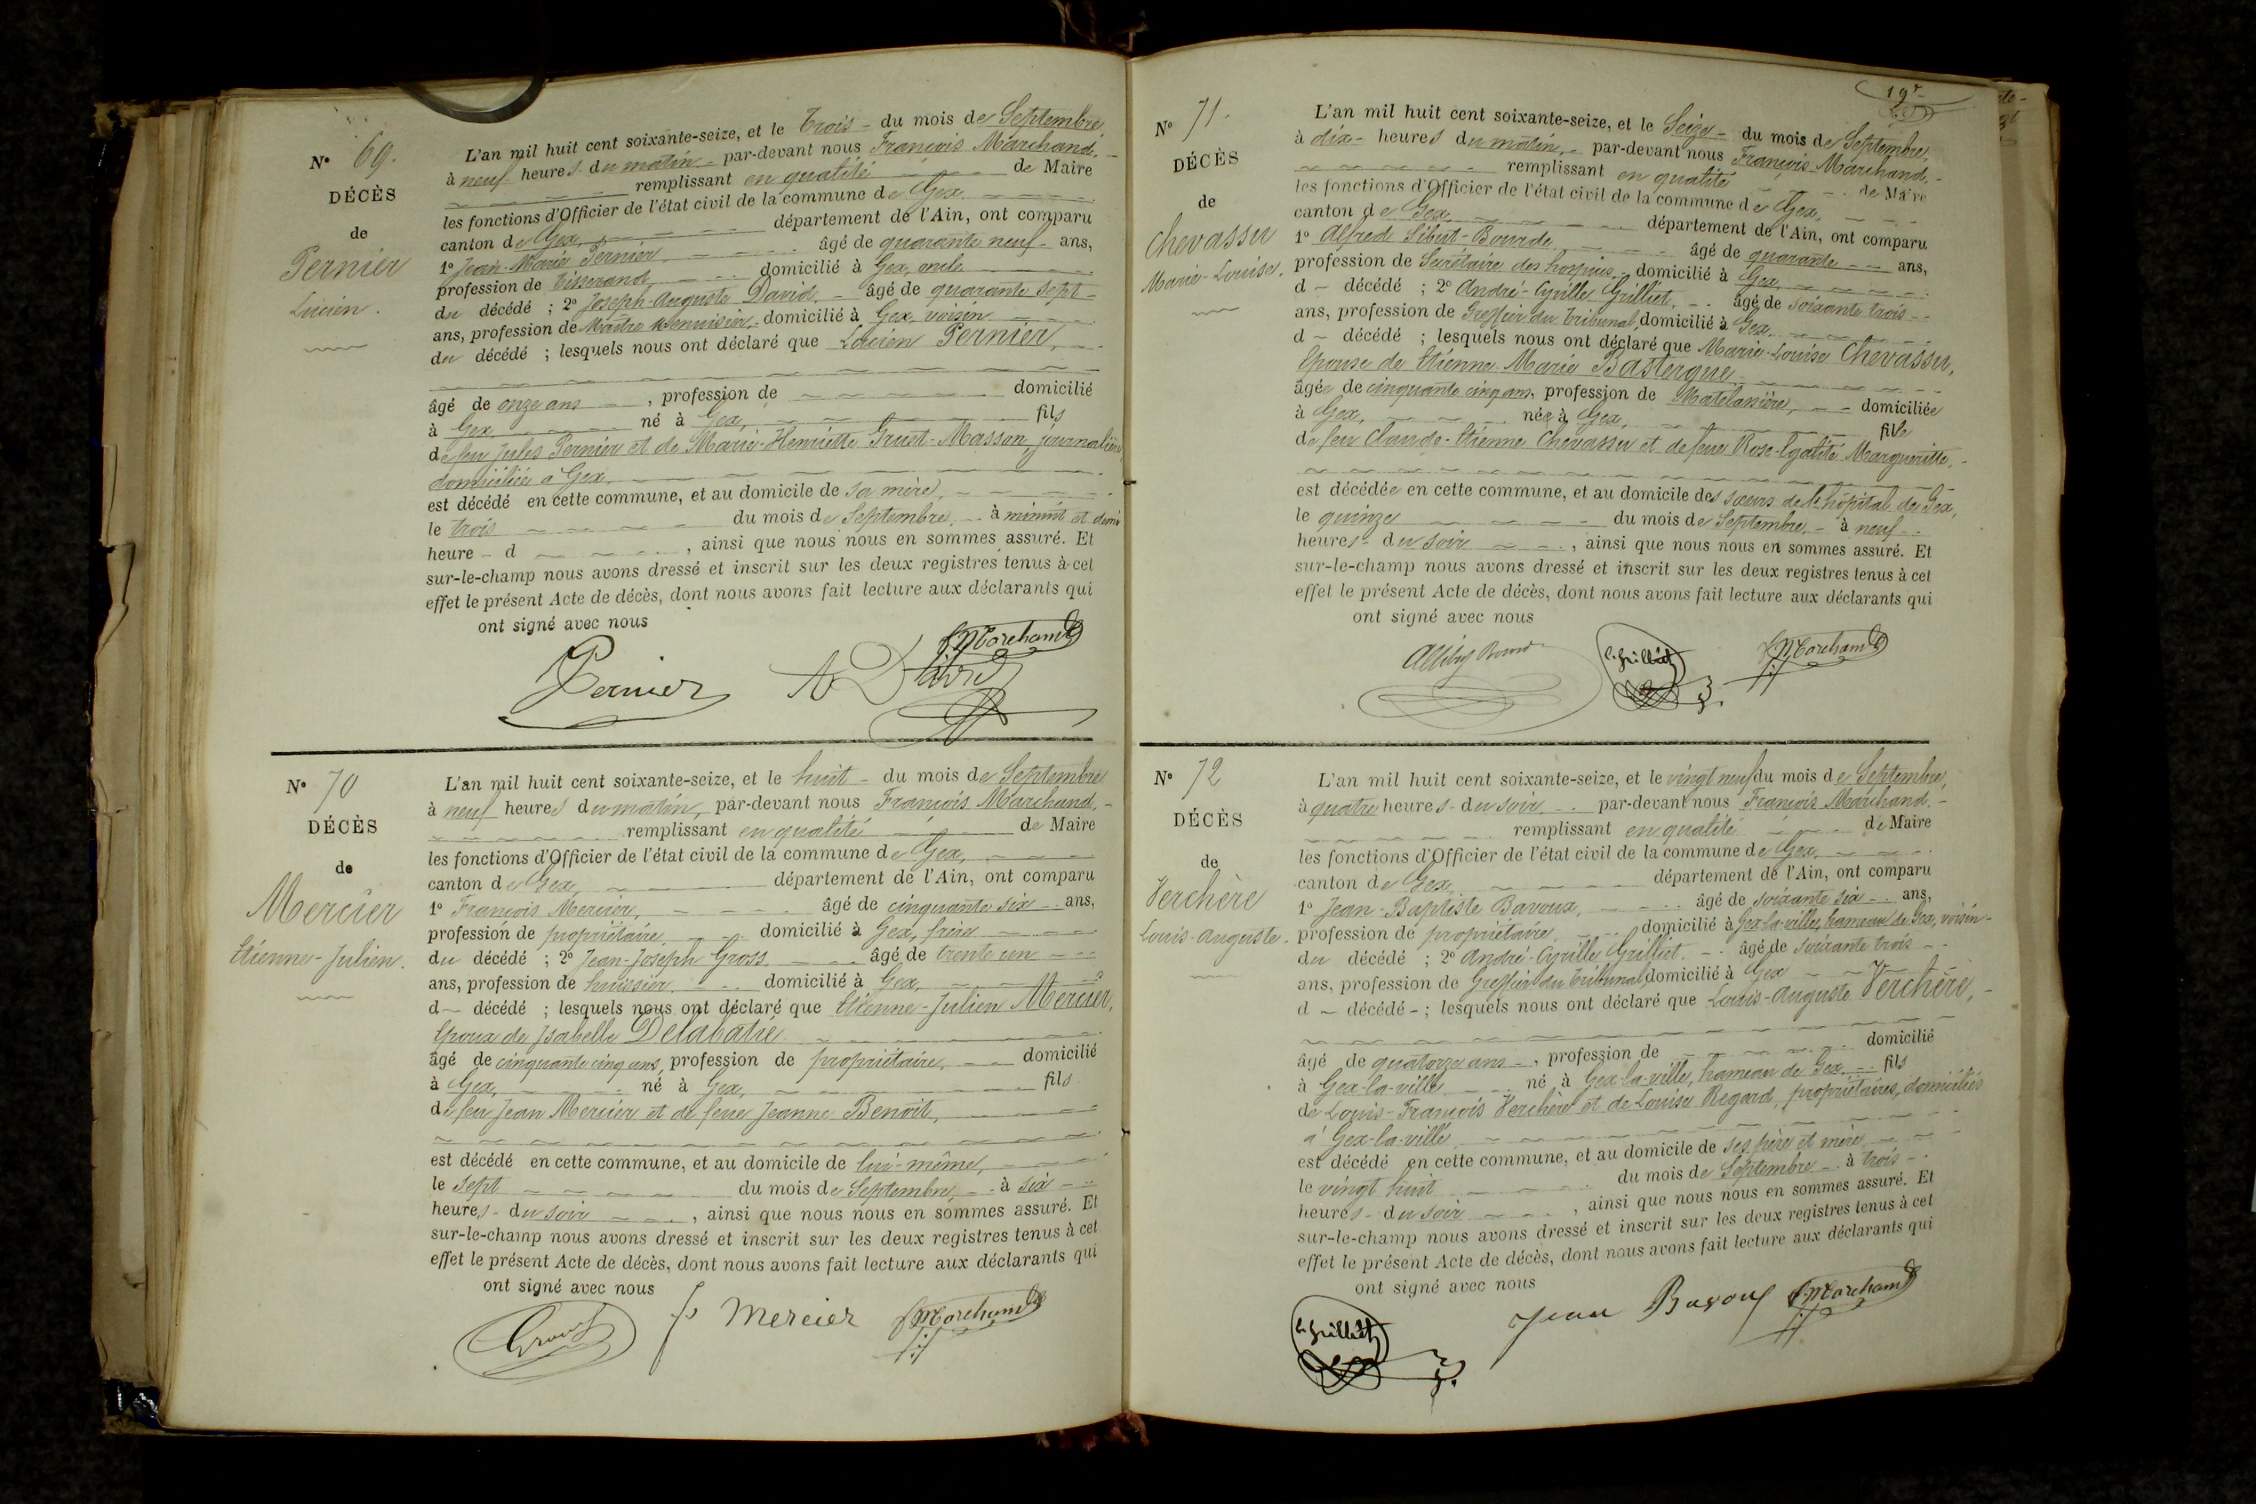 N° 69.
DÉCÈS
de
Pernier
Lucien.
L'an mil huit cent soixante-seize, et le trois du mois de Septembre,
à neuf heures du matin, par-devant nous François Marchand,
remplissant en qualité de Maire
les fonctions d'Officier de l'état civil de la commune de Gex
canton de Gex, département de l'Ain, ont comparu
1° Jean-Marie Pernier, âgé de quarante neuf ans,
profession de tisserand, domicilié à Gex, oncle
du décédé ; 2° Joseph-Auguste David, âgé de quarante sept
ans, profession de Maître Menuisier, domicilié à Gex, voisin
du décédé ; lesquels nous ont déclaré que Lucien Pernier,
âgé de onze ans, profession de domicilié
à Gex, né à Gex, fils
de feu Jules Pernier et de Marie-Henriette Masson, journalière,
domiciliée à Gex,
est décédé en cette commune, et au domicile de sa mère,
le trois du mois de Septembre, à minuit et demi
heure d , ainsi que nous nous en sommes assuré. Et
sur-le-champ nous avons dressé et inscrit sur les deux registres tenus à cet
effet le présent Acte de décès, dont nous avons fait lecture aux déclarants qui
ont signé avec nous
Pernier A David f. Marchand
N° 70
DÉCÈS
de
Mercier
Etienne-Julien.
L'an mil huit cent soixante-seize, et le huit du mois de Septembre
à neuf heures du matin, par-devant nous François Marchand,
remplissant en qualité de Maire
les fonctions d'Officier de l'état civil de la commune de Gex,
canton de Gex, département de l'Ain, ont comparu
1° François Mercier, âgé de cinquante six ans,
profession de propriétaire, domicilié à Gex, frère
du décédé ; 2° Jean-Joseph Gross, âgé de trente un
ans, profession de huissier, domicilié à Gex,
d décédé ; lesquels nous ont déclaré que Etienne-Julien Mercier,
Epoux de Isabelle Delabatie
âgé de cinquante cinq ans, profession de propriétaire, domicilié
à Gex, né à Gex, fils
de feu Jean Mercier et de feue Jeanne Benoit,
est décédé en cette commune, et au domicile de lui-même,
le sept du mois de Septembre, à six
heures du soir, ainsi que nous nous en sommes assuré. Et
sur-le-champ nous avons dressé et inscrit sur les deux registres tenus à cet
effet le présent Acte de décès, dont nous avons fait lecture aux déclarants qui
ont signé avec nous
Gross f Mercier f. Marchand
19
N° 71.
DÉCÈS
de
Chevassu
Marie-Louise.
L'an mil huit cent soixante-seize, et le Seize du mois de Septembre,
à dix heures du matin, par-devant nous François Marchand,
remplissant en qualité de Maire
les fonctions d'Officier de l'état civil de la commune de Gex,
canton de Gex département de l'Ain, ont comparu
1° Alfred Sibut-Bourde, âgé de quarante ans,
profession de Secrétaire des hospices, domicilié à Gex,
d décédé ; 2° André-Cyrille Grilliet, âgé de soixante trois
ans, profession de Greffier du tribunal, domicilié à Gex,
d décédé ; lesquels nous ont déclaré que Marie-Louise Chevassu,
Epouse de Etienne-Marie Bastergue
âgée de cinquante cinq ans, profession de Matelassière, domiciliée
à Gex, née à Gex, fille
de feu Claude-Etienne Chevassu et de feue Rose-Egalité Margueritte,
est décédée en cette commune, et au domicile des sœurs de l'hôpital de Gex,
le quinze du mois de Septembre, à neuf
heures du soir, ainsi que nous nous en sommes assuré. Et
sur-le-champ nous avons dressé et inscrit sur les deux registres tenus à cet
effet le présent Acte de décès, dont nous avons fait lecture aux déclarants qui
ont signé avec nous
c. Grilliet f. Marchand
N° 72
DÉCÈS
de
Verchère
Louis-Auguste.
L'an mil huit cent soixante-seize, et le vingt neuf du mois de Septembre,
à quatre heures du soir, par-devant nous François Marchand,
remplissant en qualité de Maire
les fonctions d'Officier de l'état civil de la commune de Gex,
canton de Gex, département de l'Ain, ont comparu
1° Jean-Baptiste Bavoux, âgé de soixante six ans,
profession de propriétaire, domicilié à Gex-la-ville, hameau de Gex, voisin
du décédé ; 2° André-Cyrille Grilliet, âgé de soixante trois
ans, profession de Greffier du tribunal, domicilié à Gex
d décédé ; lesquels nous ont déclaré que Louis-Auguste Verchère,
âgé de quatorze ans, profession de domicilié
à Gex-la-ville né à Gex-la-ville, hameau de Gex, fils
de Louis-François Verchère et de Louise Regard, propriétaires, domiciliés
à Gex-la-ville
est décédé en cette commune, et au domicile de ses père et mère
le vingt huit du mois de Septembre à trois
heures du soir, ainsi que nous nous en sommes assuré. Et
sur-le-champ nous avons dressé et inscrit sur les deux registres tenus à cet
effet le présent Acte de décès, dont nous avons fait lecture aux déclarants qui
ont signé avec nous
c. Grilliet Jean Bavoux f. Marchand